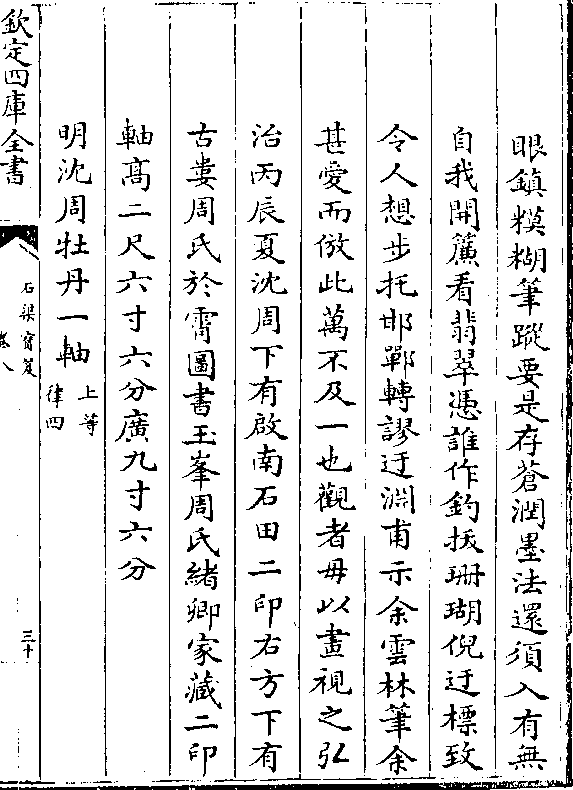 眼鎮糢糊筆蹤要是存蒼潤墨法還須入有無
自我開簾看翡翠憑誰作釣拔珊瑚倪迂標致
令人想步托邯鄲轉謬迂淵甫示余雲林筆余
甚愛而倣此萬不及一也觀者毋以畫視之弘
治丙辰夏沈周下有啟南石田二印右方下有
古婁周氏於霄圖書玉峯周氏緒卿家藏二印
軸髙二尺六寸六分廣九寸六分
明沈周牡丹一軸 上等
律四
欽定四庫全書
石渠寳笈
卷八
三十